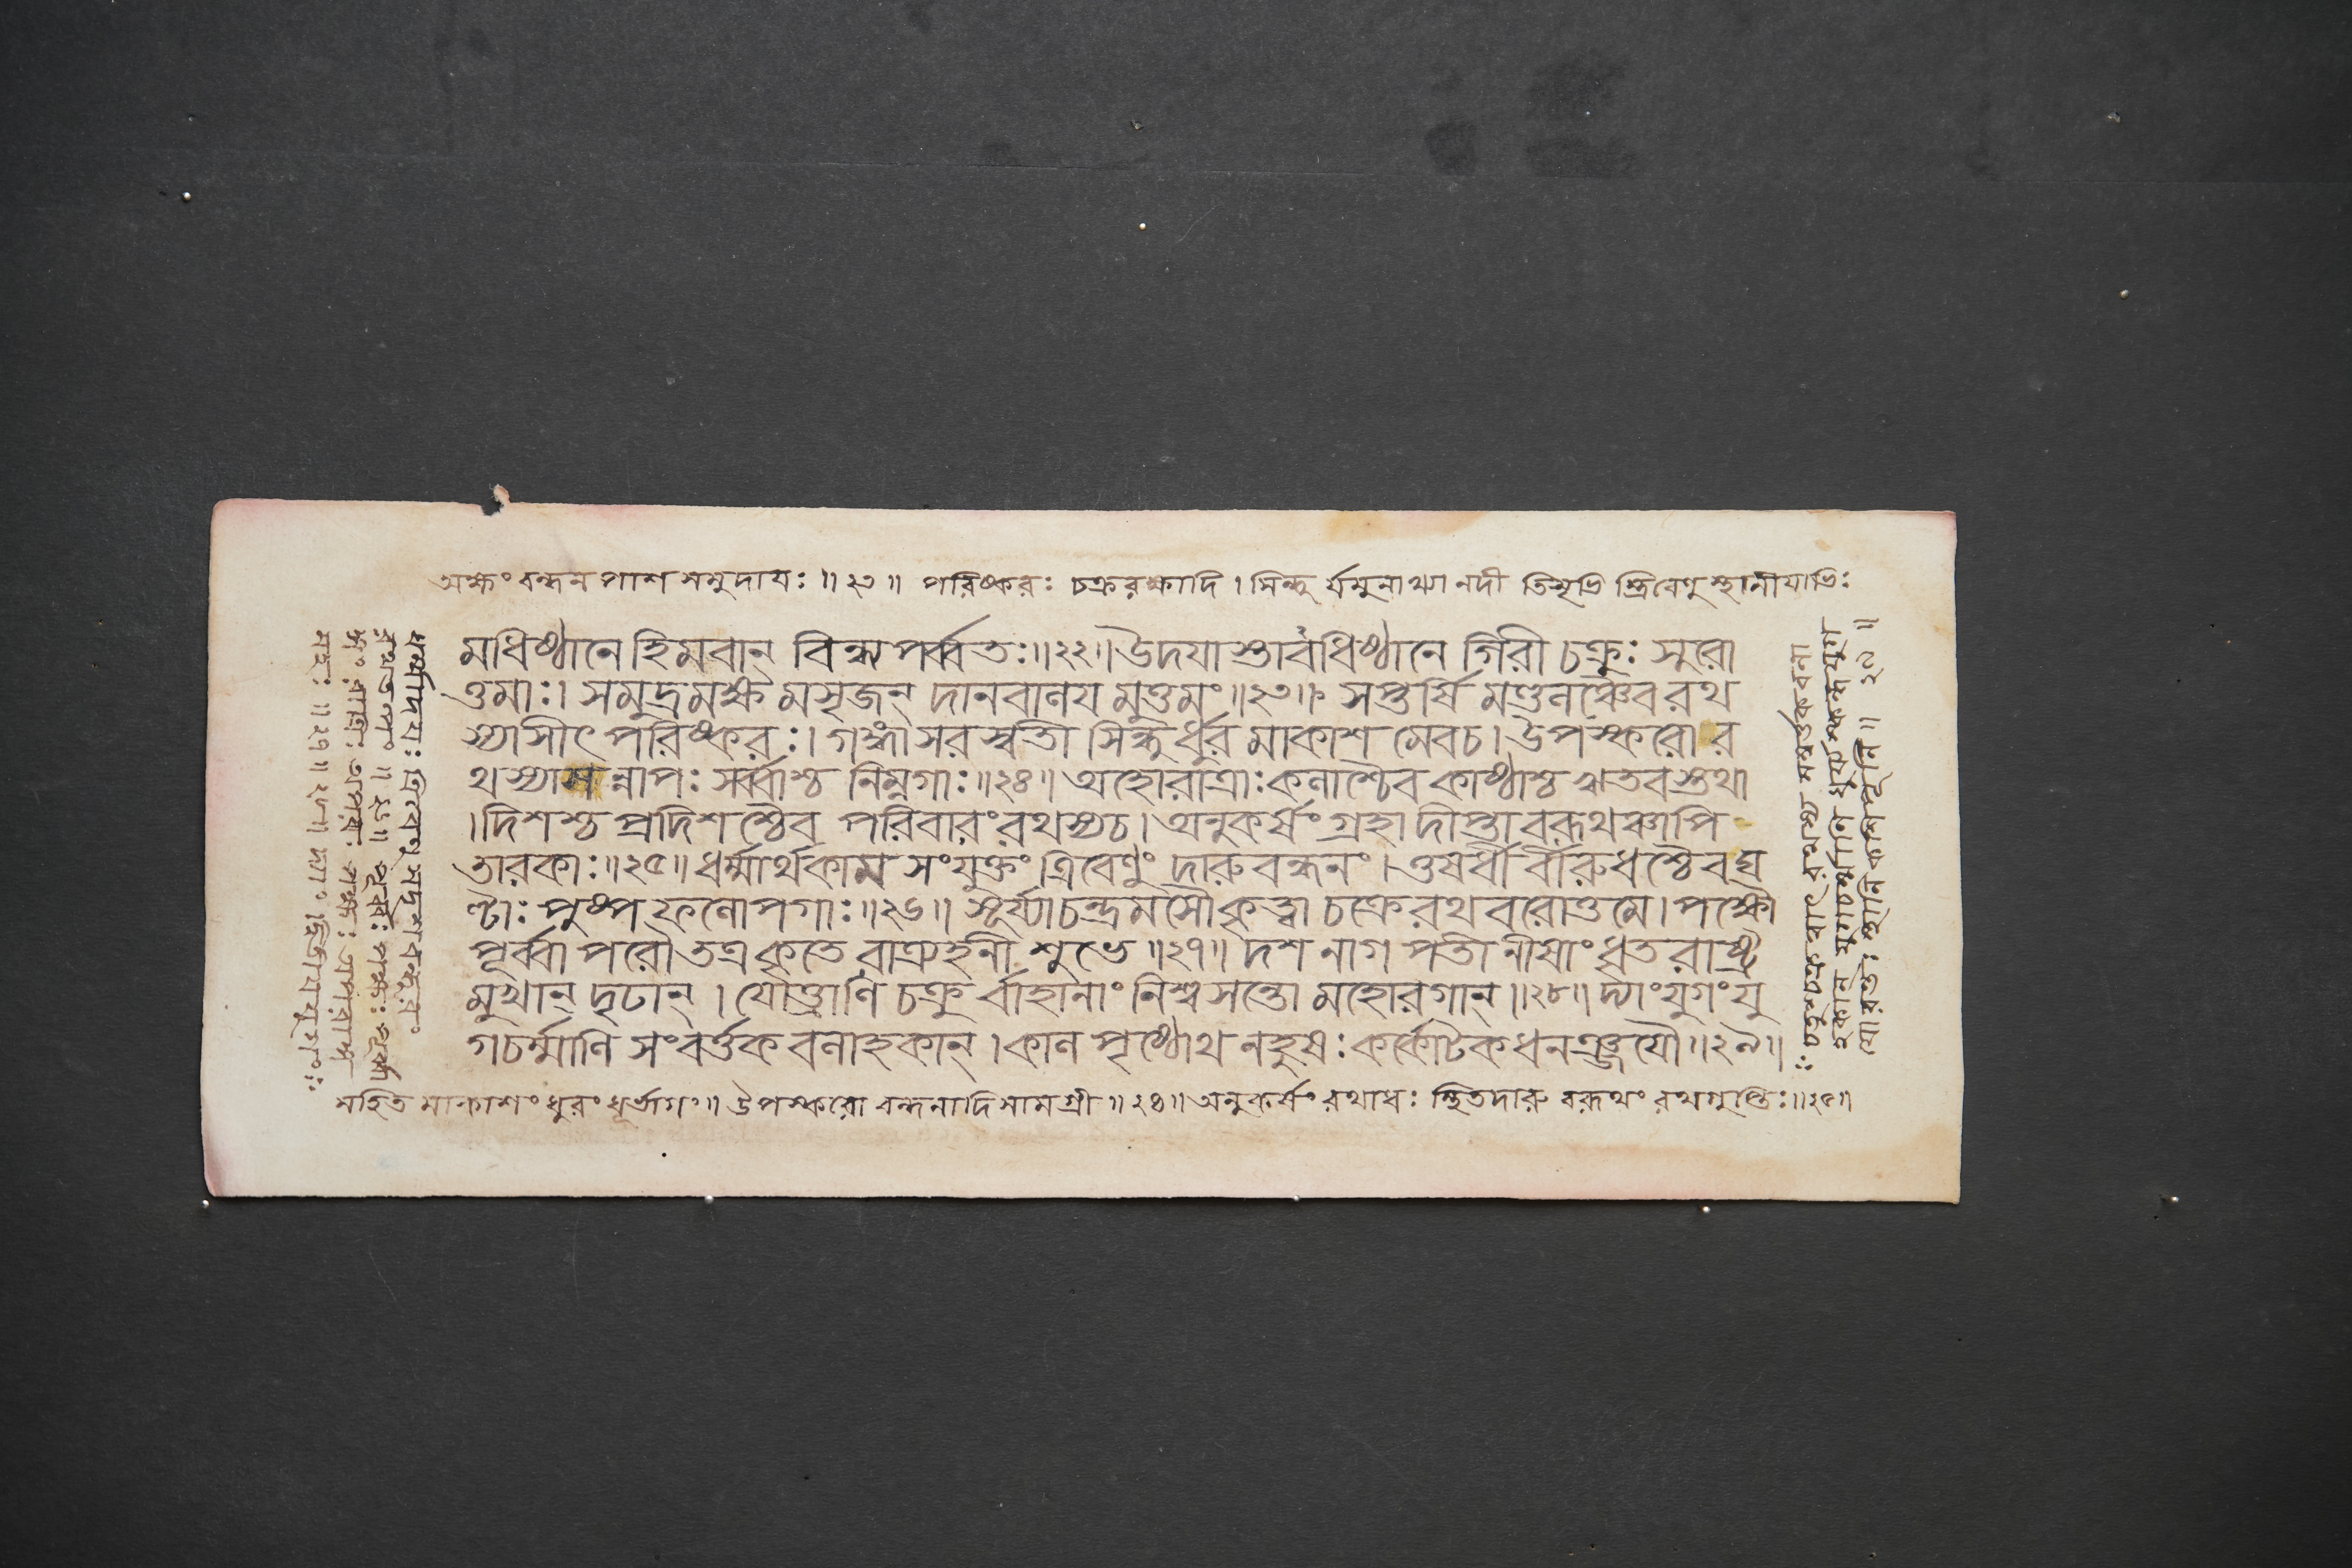 অক্ষং বন্ধন পাশ সমুদায়ঃ ॥ ২৩ ॥ পরিষ্করঃ চক্ররক্ষাদি । সিন্ধু র্যমুনাখ্যা নদী তিসৃভি স্ত্রিবেণু স্থানীয়াভিঃ
মধিষ্ঠানে হিমবান্ বিন্ধ্য পর্ব্বতঃ॥২২॥ উদয়াস্তাবধিষ্ঠানে গিরী চক্রুঃ সুরো
ত্তমাঃ। সমুদ্রমক্ষ মসৃজন্ দানবালয় মুত্তমং ॥২৩॥ সপ্তর্ষি মণ্ডলঞ্চৈব রথ
স্যাসীৎ পরিষ্করঃ। গঙ্গা সরস্বতী সিন্ধু র্ধুর মাকাশ মেবচ। উপস্করো র
থস্যাসন্নাপঃ সর্ব্বাশ্চ নিম্নগাঃ॥২৪॥ অহোরাত্রাঃ কলাশ্চৈব কাষ্ঠাশ্চ ঋতব স্তথা
। দিশশ্চ প্রদিশ শ্চৈব পরিবারং রথস্যচ। অনুকর্ষং গ্রহা দীপ্তা বরূথঞ্চাপি
তারকাঃ॥২৫॥ ধর্ম্মার্থকাম সংযুক্তং ত্রিবেণুং দারু বন্ধনং। ওষধী র্বীরুধ শ্চৈব ঘ
ণ্টাঃ পুষ্প ফলোপগাঃ॥২৬॥ সূর্য্যাচন্দ্রমসৌ কৃত্বা চক্রে রথ বরোত্তমে। পক্ষৌ
পূর্ব্বা পরৌ তত্র কৃতে রাত্র্যহনী শুভে ॥২৭॥ দশ নাগ পতী নীষাং ধৃতরাষ্ট্র
মুখান্ দৃঢান্। যোক্ত্রাণি চক্রু র্বাহানাং নিশ্বসন্তো মহোরগান্ ॥২৮॥ দ্যাং যুগং যু
গচর্ম্মাণি সংবর্ত্তক বলাহকান্। কাল পৃষ্ঠোথ নহুষঃ কর্কোটক ধনঞ্জয়ৌ ॥২৯॥
সহিত মাকাশং ধুরং ধূর্ভাগং॥ উপস্করো বন্ধনাদি সামগ্রী ॥ ২৪॥ অনুকর্ষং রথাধঃ স্থিতদারু বরূথং রথগুপ্তিঃ॥২৫॥
ধর্ম্মাদয়ঃ ত্রিবেণু
॥ ২৬॥ পূর্ব্বঃ পক্ষঃ
রাত্রিঃ অপরঃ পক্ষঃ
॥ ২৭॥ ২৮॥ দ্যাং
সম্বর্ত্তক বলা
হকান্ যুগচর্ম্মাণি
॥ ২৯ ॥